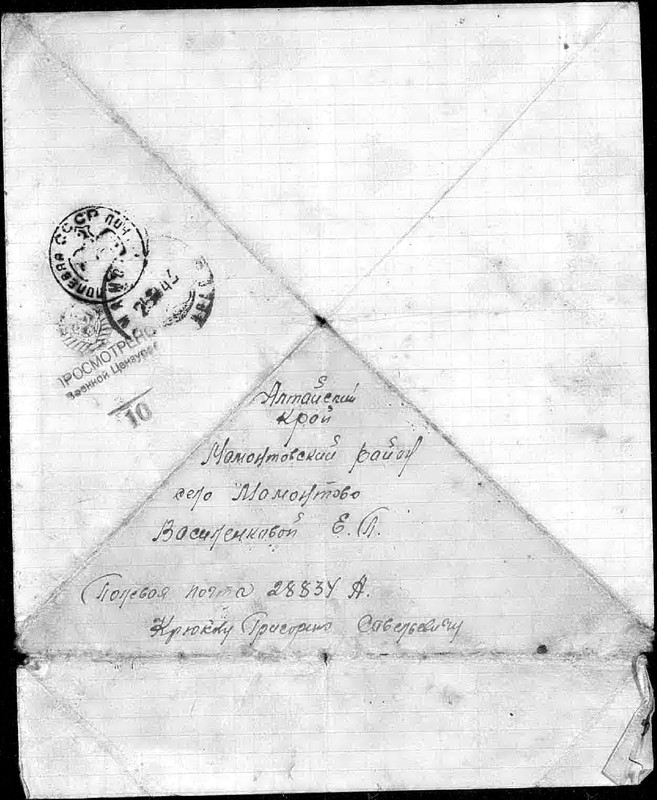 ПОЛЕВАЯ СССР ПОЧ
25 42
ПРОСМОТРЕНО
Военной Цензурой
10
Алтайский
Край
Мамонтовский район
село Мамонтово
Василенковой Е. П.
Полевая почта 28834 А.
Крюкову Григорию Савельевичу